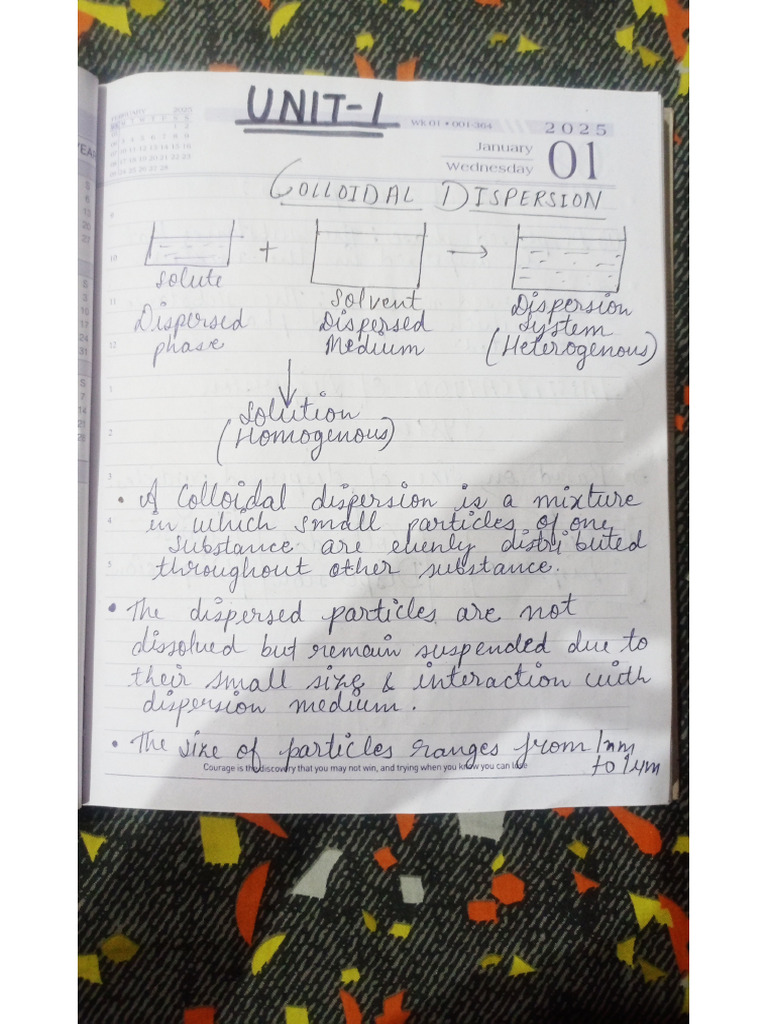 UNIT-1
FEBRUARY 2025
WK 01 • 001-364
2025
January
Wednesday
01
COLLOIDAL DISPERSION
+
→
Solute
Dispersed
phase
Solvent
Dispersed
Medium
Dispersion
System
(Heterogenous)
Solution
(Homogenous)
• A Colloidal dispersion is a mixture
in which small particles of one
substance are evenly distributed
throughout other substance.
• The dispersed particles are not
dissolved but remain suspended due to
their small size & interaction with
dispersion medium.
• The size of particles ranges from 1nm
to 1μm
Courage is the discovery that you may not win, and trying when you know you can lose